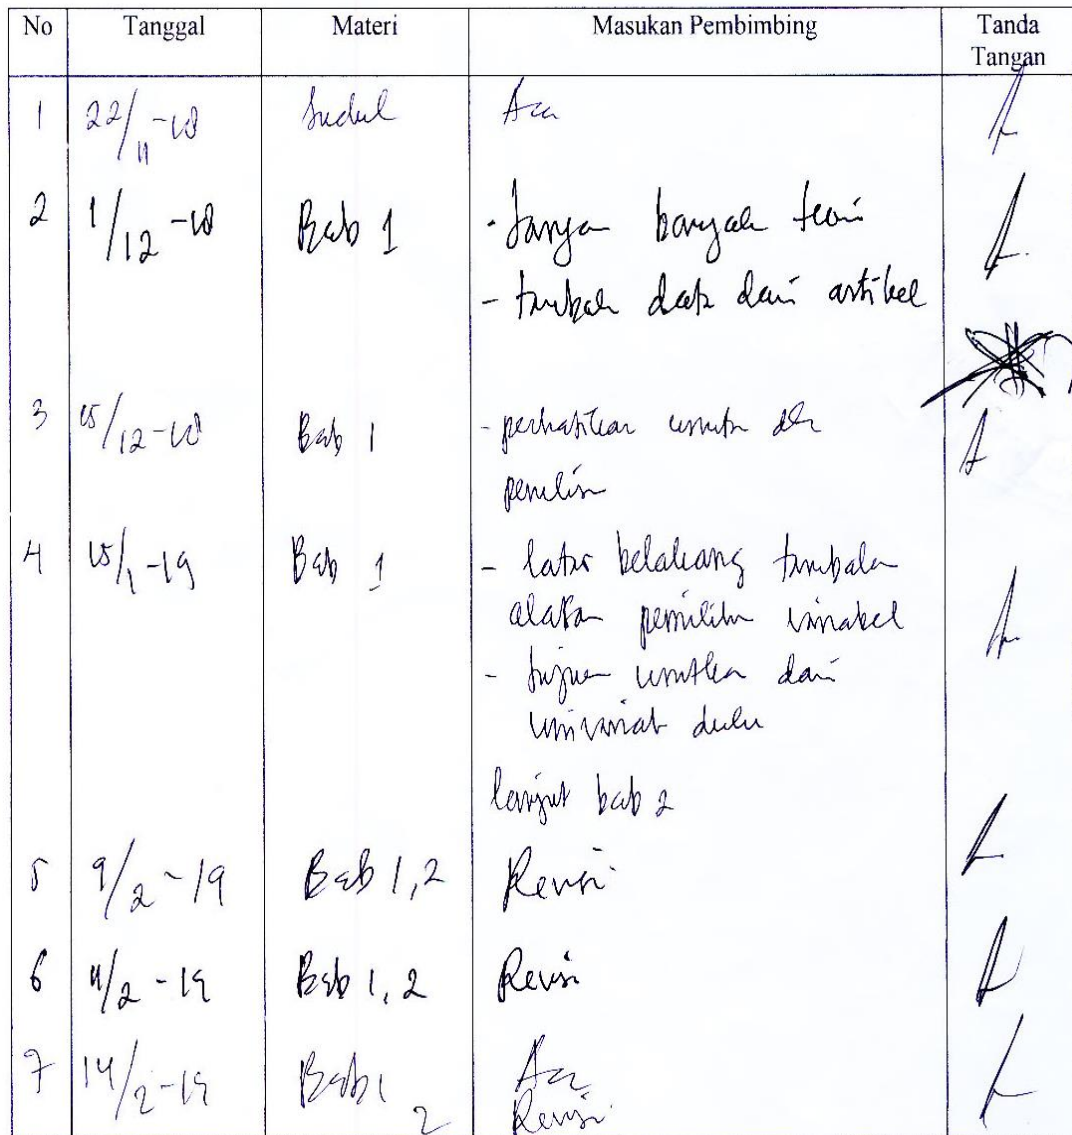 No Tanggal Materi Masukan Pembimbing Tanda
Tangan
1 22/11-18 Judul Acc
2 1/12-18 Bab 1 - Jangan banyak teori
- tambah data dari artikel
3 15/12-18 Bab 1 - perhatikan
4 15/1-19 Bab 1 - latar belakang tambah
alasan pemilihan variabel
- tujuan urutkan dari
univariat dulu
lanjut bab 2
5 9/2-19 Bab 1,2 Revisi
6 11/2-19 Bab 1,2 Revisi
7 14/2-19 Bab 1 Acc
2 Revisi